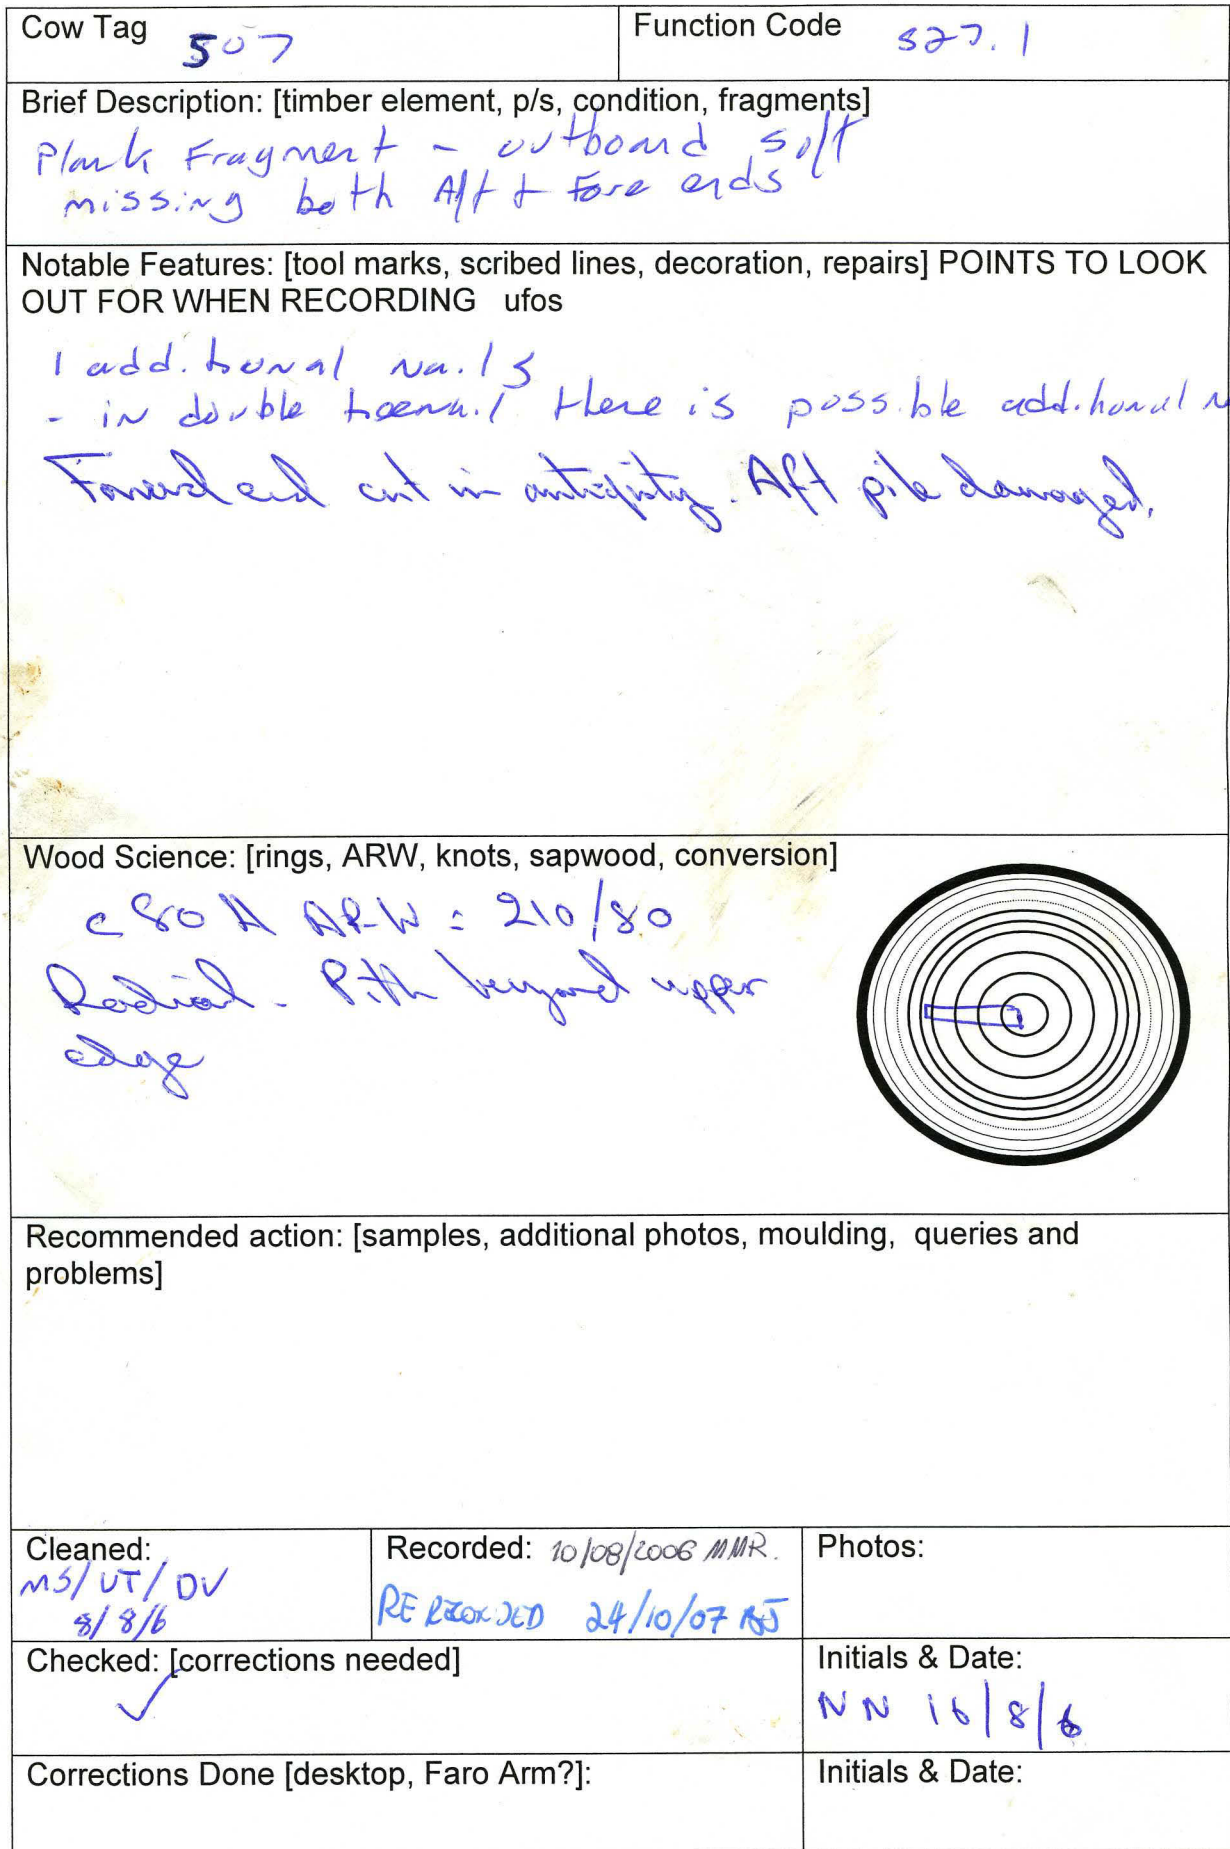 Cow Tag 507
Function Code S27.1
Brief Description: [timber element, p/s, condition, fragments]
Plank Fragment - outboard soft
missing both Aft + Fore ends
Notable Features: [tool marks, scribed lines, decoration, repairs] POINTS TO LOOK
OUT FOR WHEN RECORDING ufos
1 additional nails
- in double treenail there is possible additional n
Forward end cut in antiquity. Aft pile damaged.
Wood Science: [rings, ARW, knots, sapwood, conversion]
c 80 A ARW = 210/80
Radial - Pith beyond upper
edge
Recommended action: [samples, additional photos, moulding, queries and
problems]
Cleaned:
MS/UT/DV
8/8/6
Recorded: 10/08/2006 MMR.
RE RECORDED 24/10/07
Photos:
Checked: [corrections needed]
✓
Initials & Date:
NN 16/8/6
Corrections Done [desktop, Faro Arm?]:
Initials & Date: